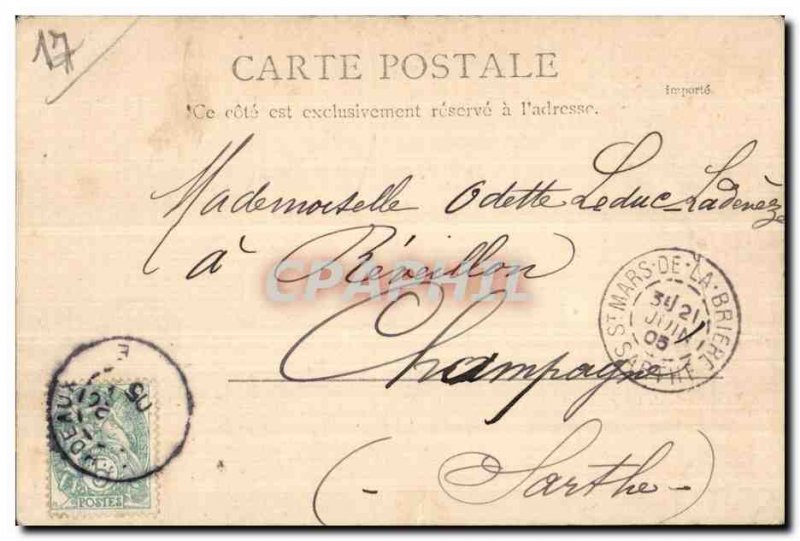 17
CARTE POSTALE
Importé.
Ce côté est exclusivement réservé à l'adresse.
Mademoiselle Odette Leduc-Ladevèze
à Réveillon
CPAPHIL
Champagné
(- Sarthe -)
ST MARS-DE-LA-BRIÈRE
21
JUIN
05
SARTHE
E
05
POSTES